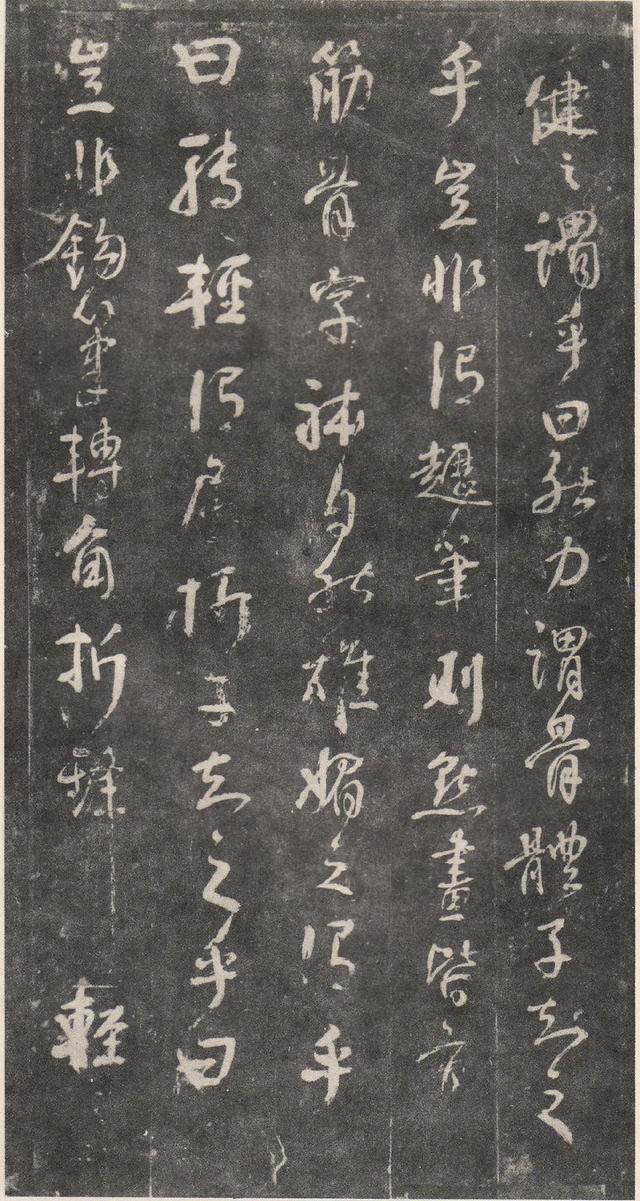 健之謂乎曰然力謂骨體子知之
乎豈非謂趯筆則點畫皆有
筋骨字體自然雄媚之謂乎
曰轉輕謂屈折子知之乎曰
豈非鉤筆轉角折鋒輕